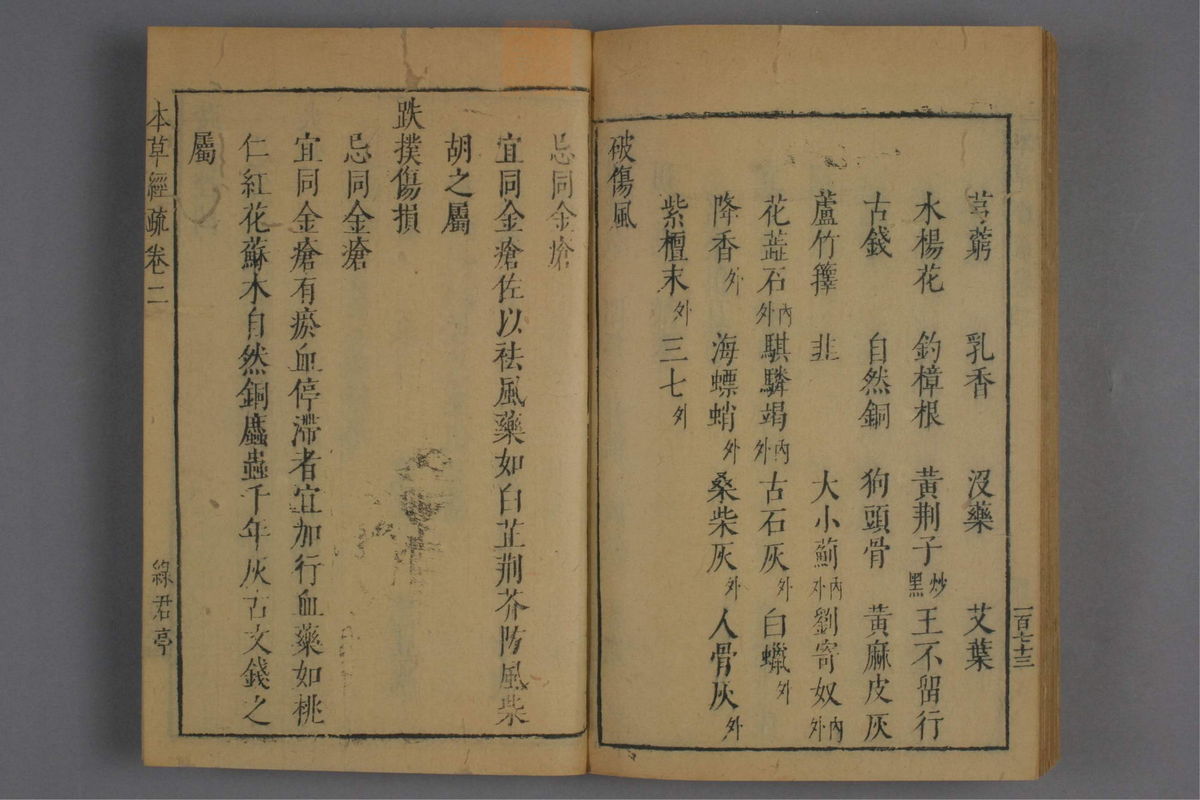 芎藭 乳香 沒藥 艾葉
水楊花 釣樟根 黃荆子炒黑 王不留行
古錢 自然銅 狗頭骨 黃麻皮灰
蘆竹籜 韭 大小薊內外 劉寄奴內外
花蕋石內外 騏驎竭內外 古石灰外 白蠟外
降香外 海螵蛸外 桑柴灰外 人骨灰外
紫檀末外 三七外
破傷風
一百七十三
忌同金瘡
宜同金瘡佐以祛風藥如白芷荆芥防風柴
胡之屬
跌撲傷損
忌同金瘡
宜同金瘡有瘀血停滯者宜加行血藥如桃
仁紅花蘇木自然銅䗪蟲千年灰古文錢之
屬
本草經疏 卷二
綠君亭